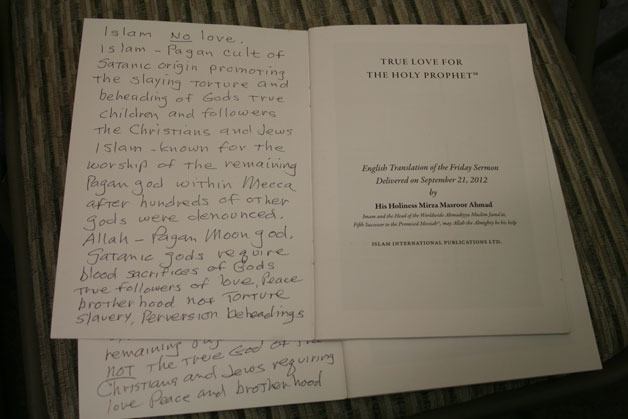 Islam NO love.
Islam - Pagan cult of
Satanic origin promoting
the slaying torture and
beheading of Gods true
children and followers
the Christians and Jews
Islam - known for the
worship of the remaining
Pagan god within Mecca
after hundreds of other
gods were denounced.
Allah - Pagan Moon god.
Satanic gods require
blood sacrifices of Gods
true followers of love, Peace
brotherhood not Torture
slavery, Perversion beheadings
remaining
NOT The True God of the
Christians and Jews requiring
love Peace and brotherhood
TRUE LOVE FOR
THE HOLY PROPHETsa
English Translation of the Friday Sermon
Delivered on September 21, 2012
by
His Holiness Mirza Masroor Ahmad
Imam and the Head of the Worldwide Ahmadiyya Muslim Jama'at,
Fifth Successor to the Promised Messiahas, may Allah the Almighty be his help
ISLAM INTERNATIONAL PUBLICATIONS LTD.